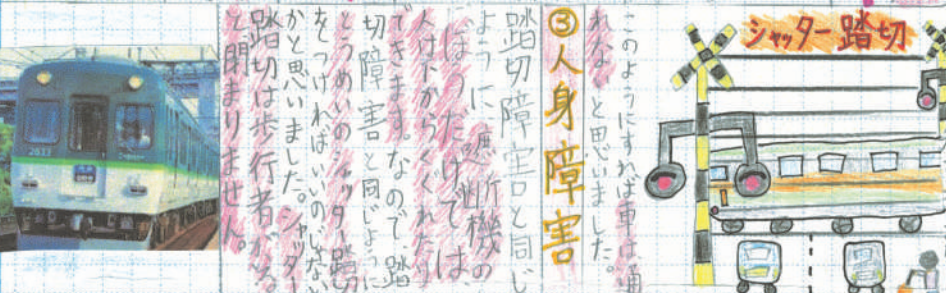 シャッター踏切
このようにすれば車は通
れな と思いました。
③人身障害
踏切障害と同じ
ように遮断機の
ぼうだけでは、
人は下からくぐれたり
できます。なので、踏
切障害と同じように
とうめいのシャッター踏切
をつければいいのじゃない
かと思いました。シャッター
踏切は歩行者がいる
と閉まりません。
2633